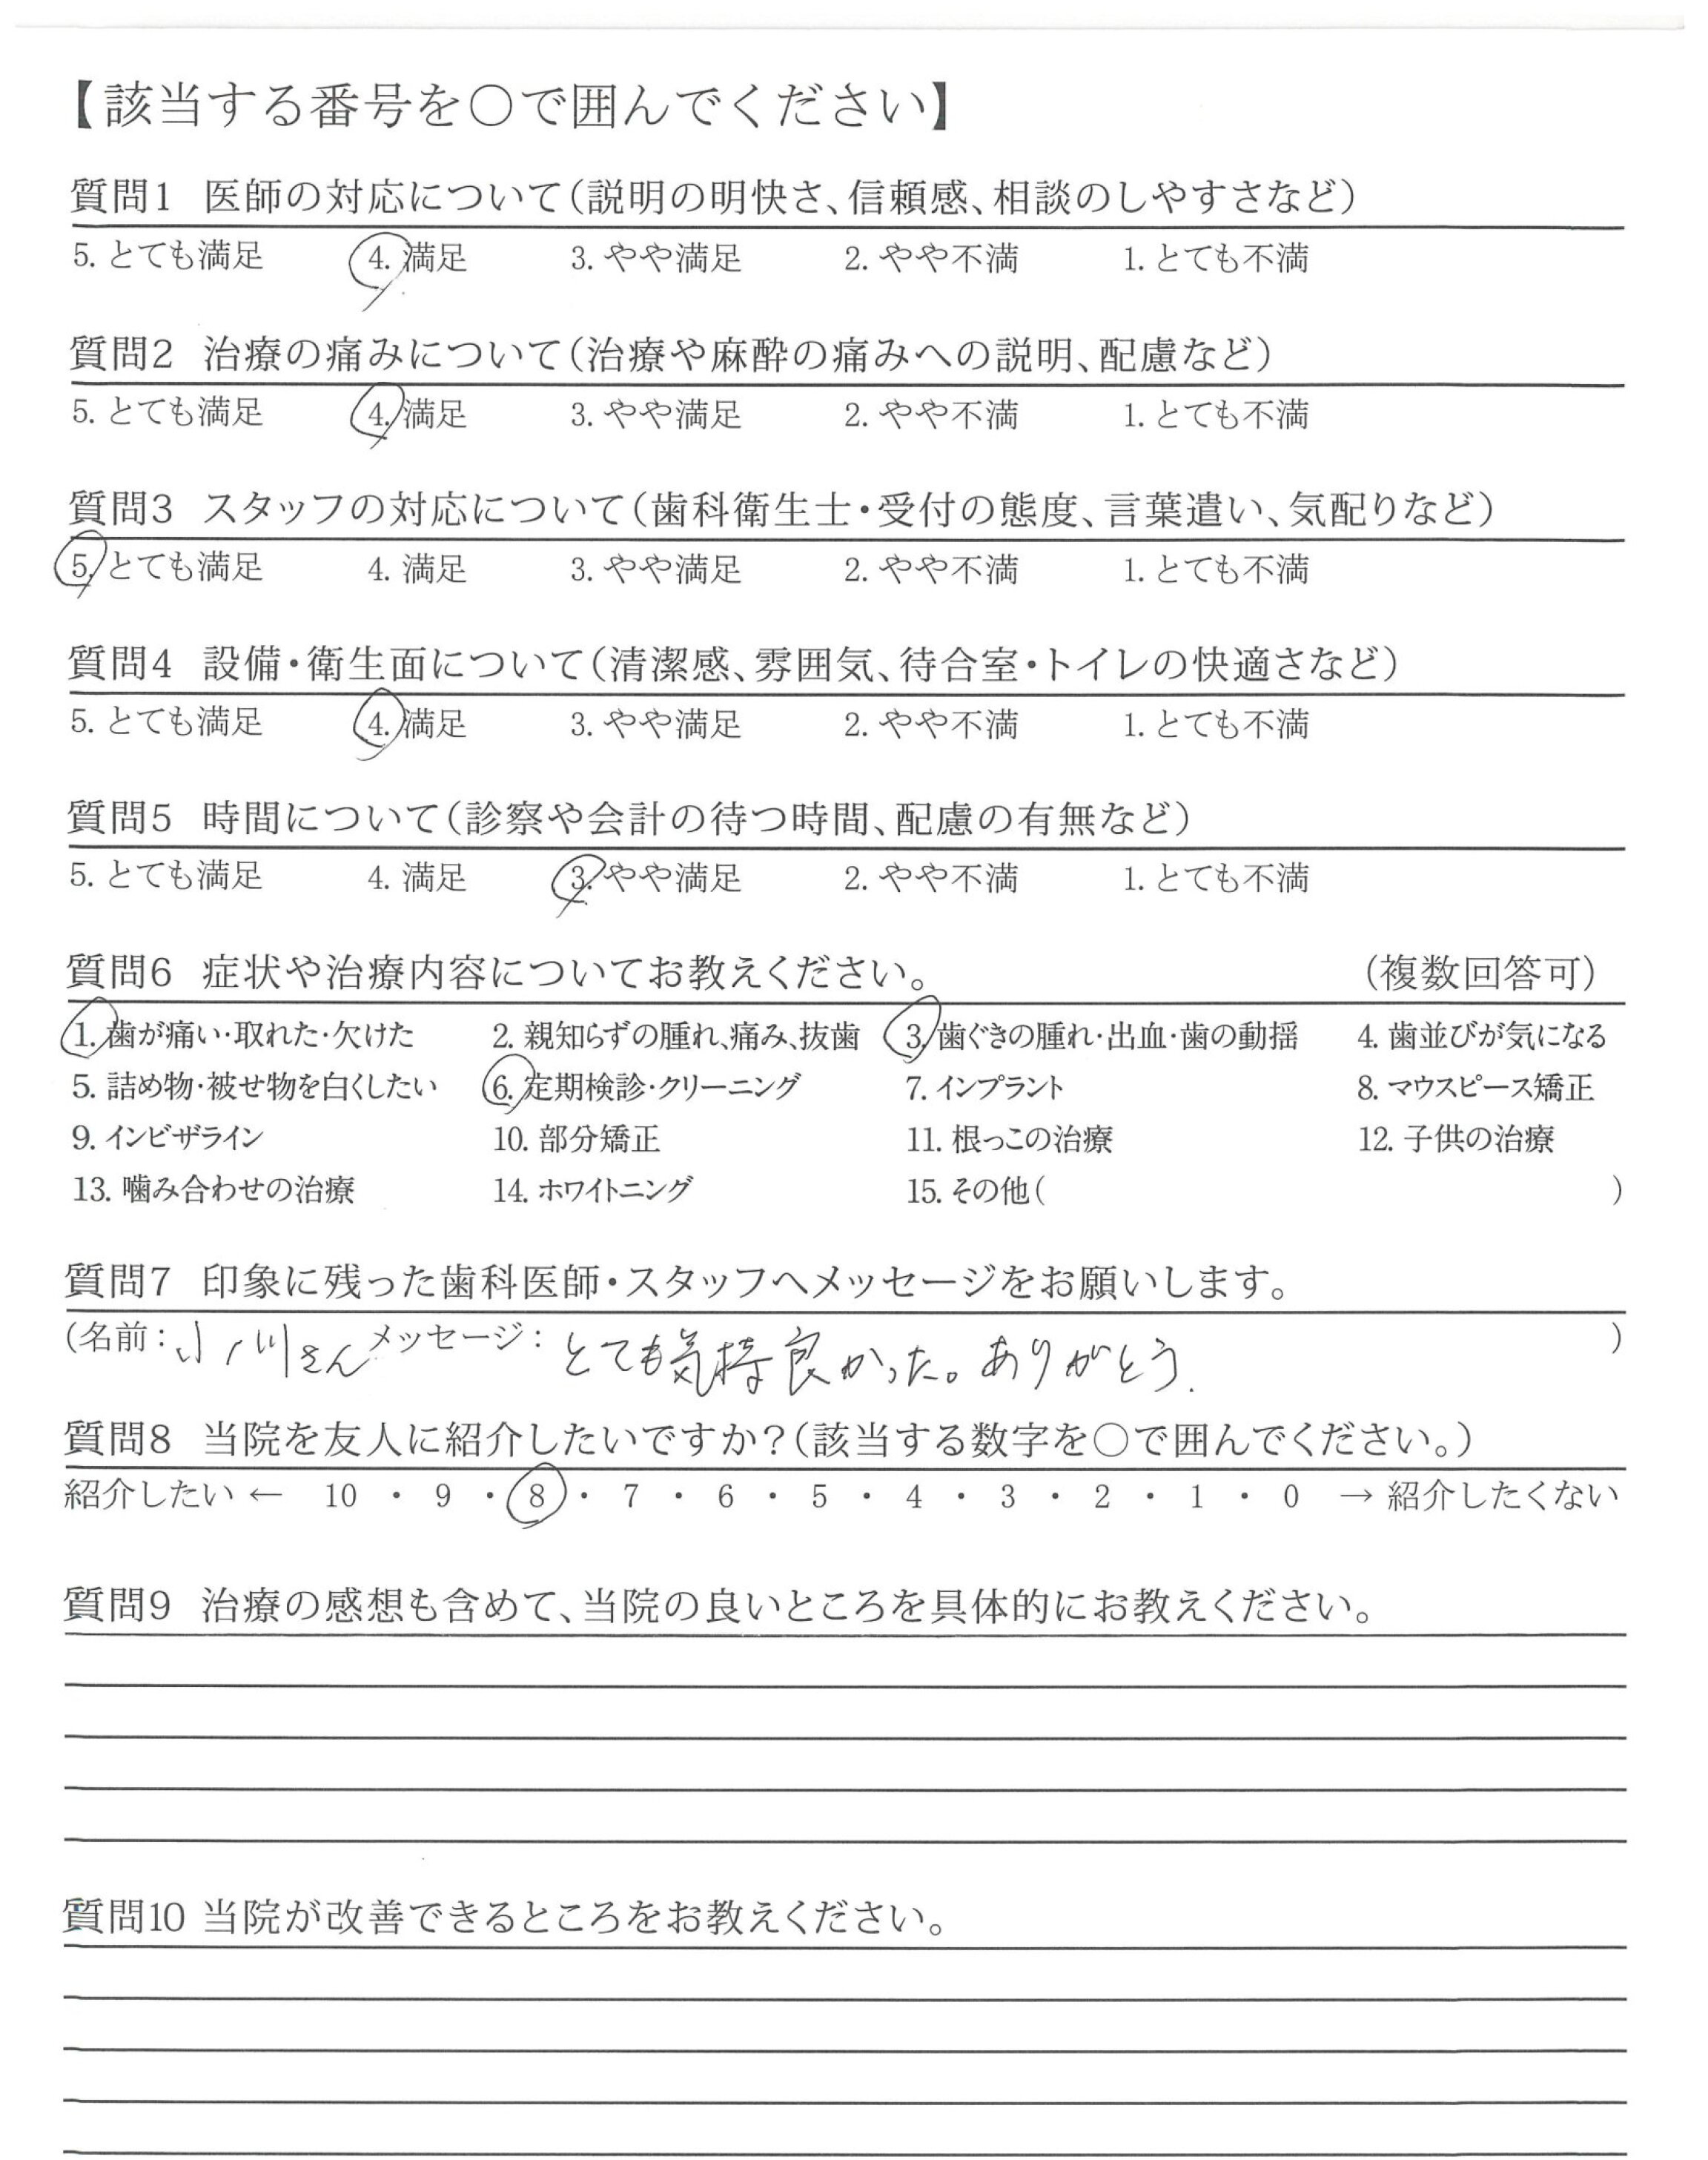 【該当する番号を○で囲んでください】
質問1 医師の対応について(説明の明快さ、信頼感、相談のしやすさなど)
5. とても満足 4. 満足 3. やや満足 2. やや不満 1. とても不満
質問2 治療の痛みについて(治療や麻酔の痛みへの説明、配慮など)
5. とても満足 4. 満足 3. やや満足 2. やや不満 1. とても不満
質問3 スタッフの対応について(歯科衛生士・受付の態度、言葉遣い、気配りなど)
5. とても満足 4. 満足 3. やや満足 2. やや不満 1. とても不満
質問4 設備・衛生面について(清潔感、雰囲気、待合室・トイレの快適さなど)
5. とても満足 4. 満足 3. やや満足 2. やや不満 1. とても不満
質問5 時間について(診察や会計の待つ時間、配慮の有無など)
5. とても満足 4. 満足 3. やや満足 2. やや不満 1. とても不満
質問6 症状や治療内容についてお教えください。 (複数回答可)
1. 歯が痛い・取れた・欠けた 2. 親知らずの腫れ、痛み、抜歯 3. 歯ぐきの腫れ・出血・歯の動揺 4. 歯並びが気になる
5. 詰め物・被せ物を白くしたい 6. 定期検診・クリーニング 7. インプラント 8. マウスピース矯正
9. インビザライン 10. 部分矯正 11. 根っこの治療 12. 子供の治療
13. 噛み合わせの治療 14. ホワイトニング 15. その他( )
質問7 印象に残った歯科医師・スタッフへメッセージをお願いします。
(名前:小川さん メッセージ: とても気持良かった。ありがとう. )
質問8 当院を友人に紹介したいですか?(該当する数字を○で囲んでください。)
紹介したい ← 10 ・ 9 ・ 8 ・ 7 ・ 6 ・ 5 ・ 4 ・ 3 ・ 2 ・ 1 ・ 0 → 紹介したくない
質問9 治療の感想も含めて、当院の良いところを具体的にお教えください。
質問10 当院が改善できるところをお教えください。